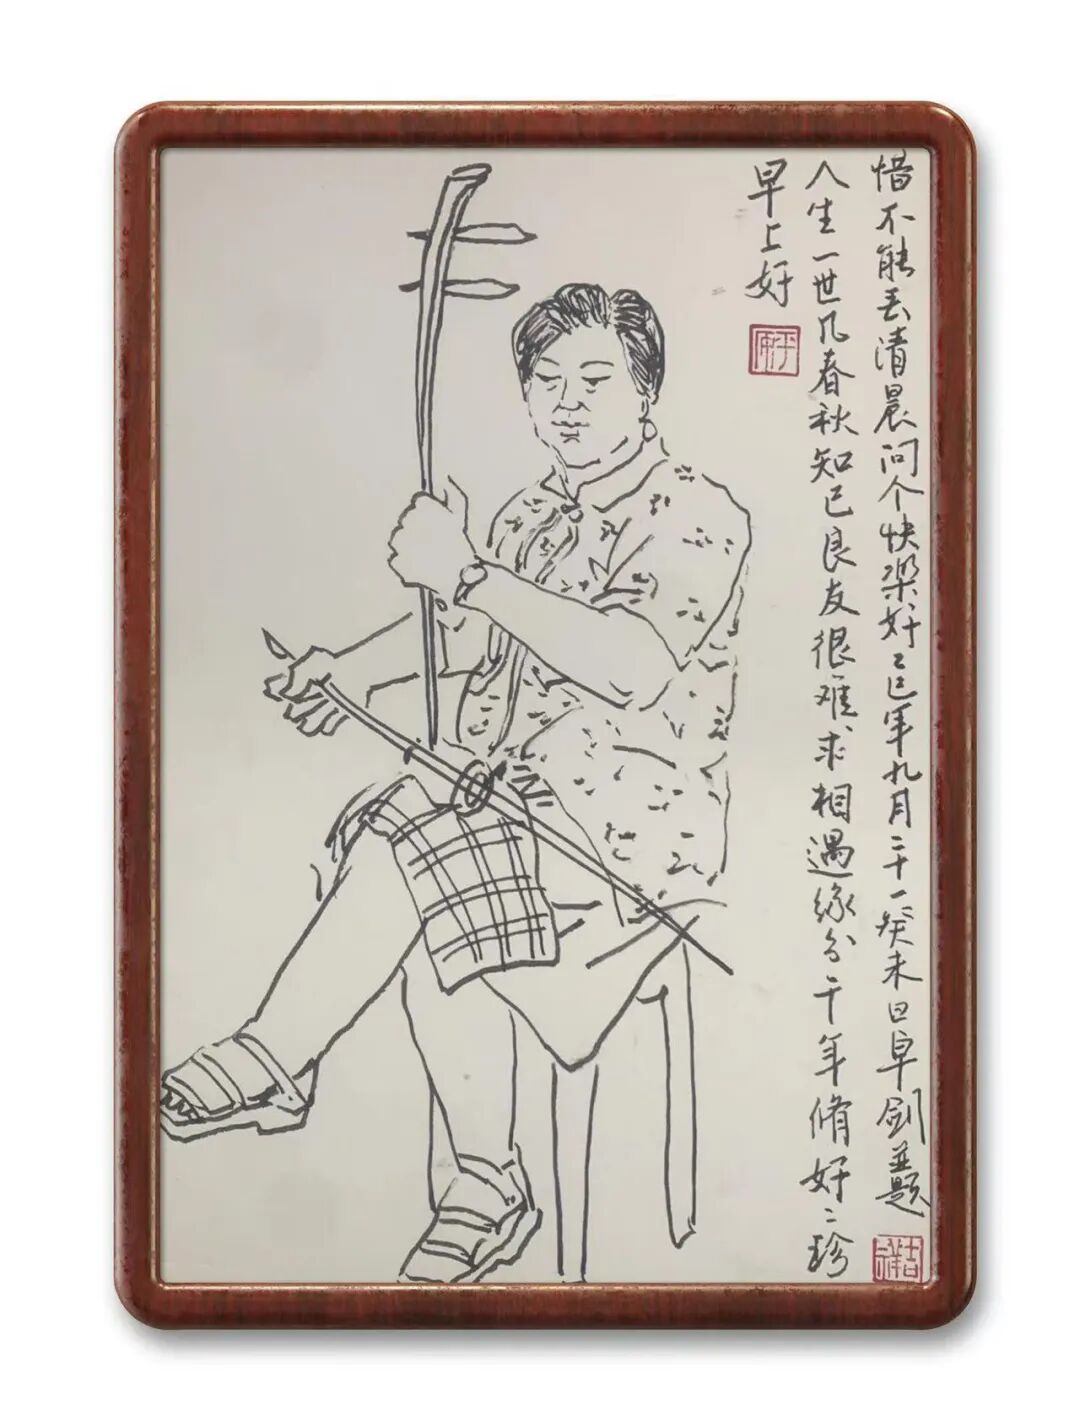 早上好
人生一世几春秋知己良友很难求相遇缘分千年脩好〻珍
惜不能丢清晨问个快樂好乙巳年九月二十一癸未日早剑並题
吉祥